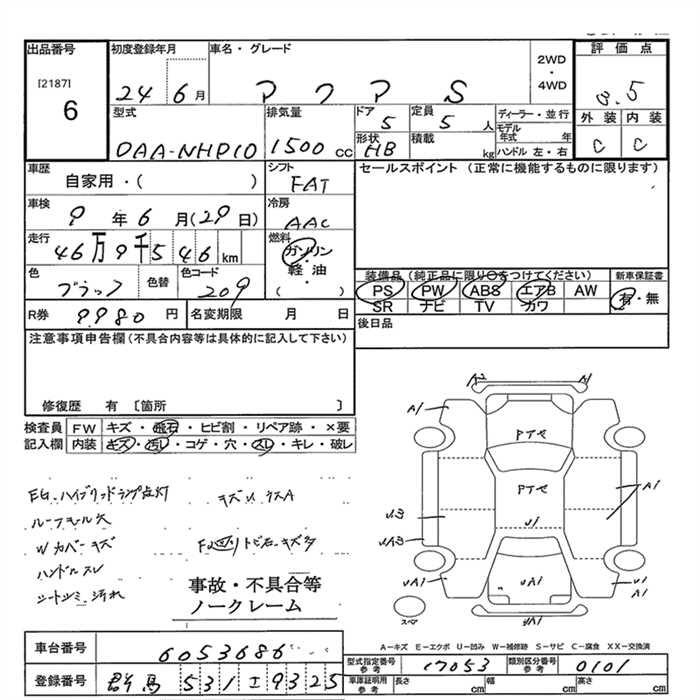 出品番号
[2187]
6
初度登録年月
24 6月
車名・グレード
アクア S
2WD
・
4WD
評価点
3.5
外装 内装
C C
型式
DAA-NHP10
排気量
1500 cc
ドア
5
定員
5 人
形状
HB
積載
kg
ディーラー・並行
モデル年式 年
ハンドル 左・右
車歴
自家用・( )
シフト
FAT
セールスポイント (正常に機能するものに限ります)
車検
9年6月(29日)
冷房
AAC
走行
46万9千546km
燃料
ガソリン
・
軽油
( )
色
ブラック
色替
色コード
209
装備品 (純正品に限り○をつけてください)
PS PW ABS エアB AW
SR ナビ TV カワ
新車保証書
有・無
R券
9980 円
名変期限 月 日
後日品
注意事項申告欄(不具合内容等は具体的に記入して下さい)
修復歴 有 〔箇所 〕
検査員
記入欄
FW キズ・飛石・ヒビ割・リペア跡・×要
内装 キズ・汚レ・コゲ・穴・スレ・キレ・破レ
EG.ハイブリッドランプ点灯
Wカバーキズ
ハンドルスレ
シートシミ汚れ
事故・不具合等
ノークレーム
A2 A1
A1
PTセ
PTセ
A1
U1
UA1
UA1
U1
A1
UA1
スペア
A-キズ E-エクボ U-凹み W-補修跡 S-サビ C-腐食 XX-交換済
車台番号
6053686
登録番号
群馬 531 ± 9325
型式指定番号
参考
17053
類別区分番号
参考
0101
車庫証明用
参考
長さ cm
幅 cm
高さ cm